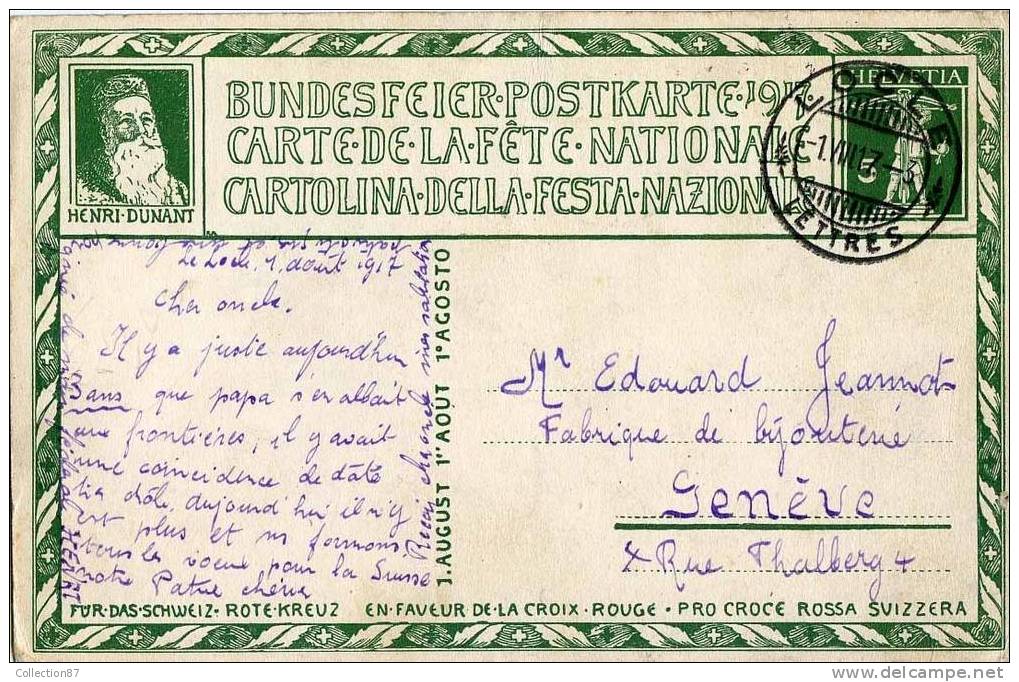 BUNDESFEIER·POSTKARTE·1917
CARTE·DE·LA·FÊTE·NATIONALE
CARTOLINA·DELLA·FESTA·NAZION
HENRI·DUNANT
HELVETIA
5
LOCLE
-1.VIII.17.-3
LETTRES
Le Locle, 1. août 1917
Cher oncle.
Il y a juste aujourd'hui
3 ans que papa s'en allait
aux frontières, il y avait
une coïncidence de date
drôle, aujourd'hui il n'y
est plus et ns formons
tous les voeux pour la Suisse
notre Patrie chérie
Reçois cher oncle mes
HENRI
1.AUGUST 1ER AOÛT 1º AGOSTO
Mr Edouard Jeannot
Fabrique de bijouterie
Genève
Rue Thalberg 4
FÜR·DAS·SCHWEIZ·ROTE·KREUZ EN·FAVEUR·DE·LA CROIX·ROUGE·PRO CROCE ROSSA SVIZZERA
Collection87
delcampe.net